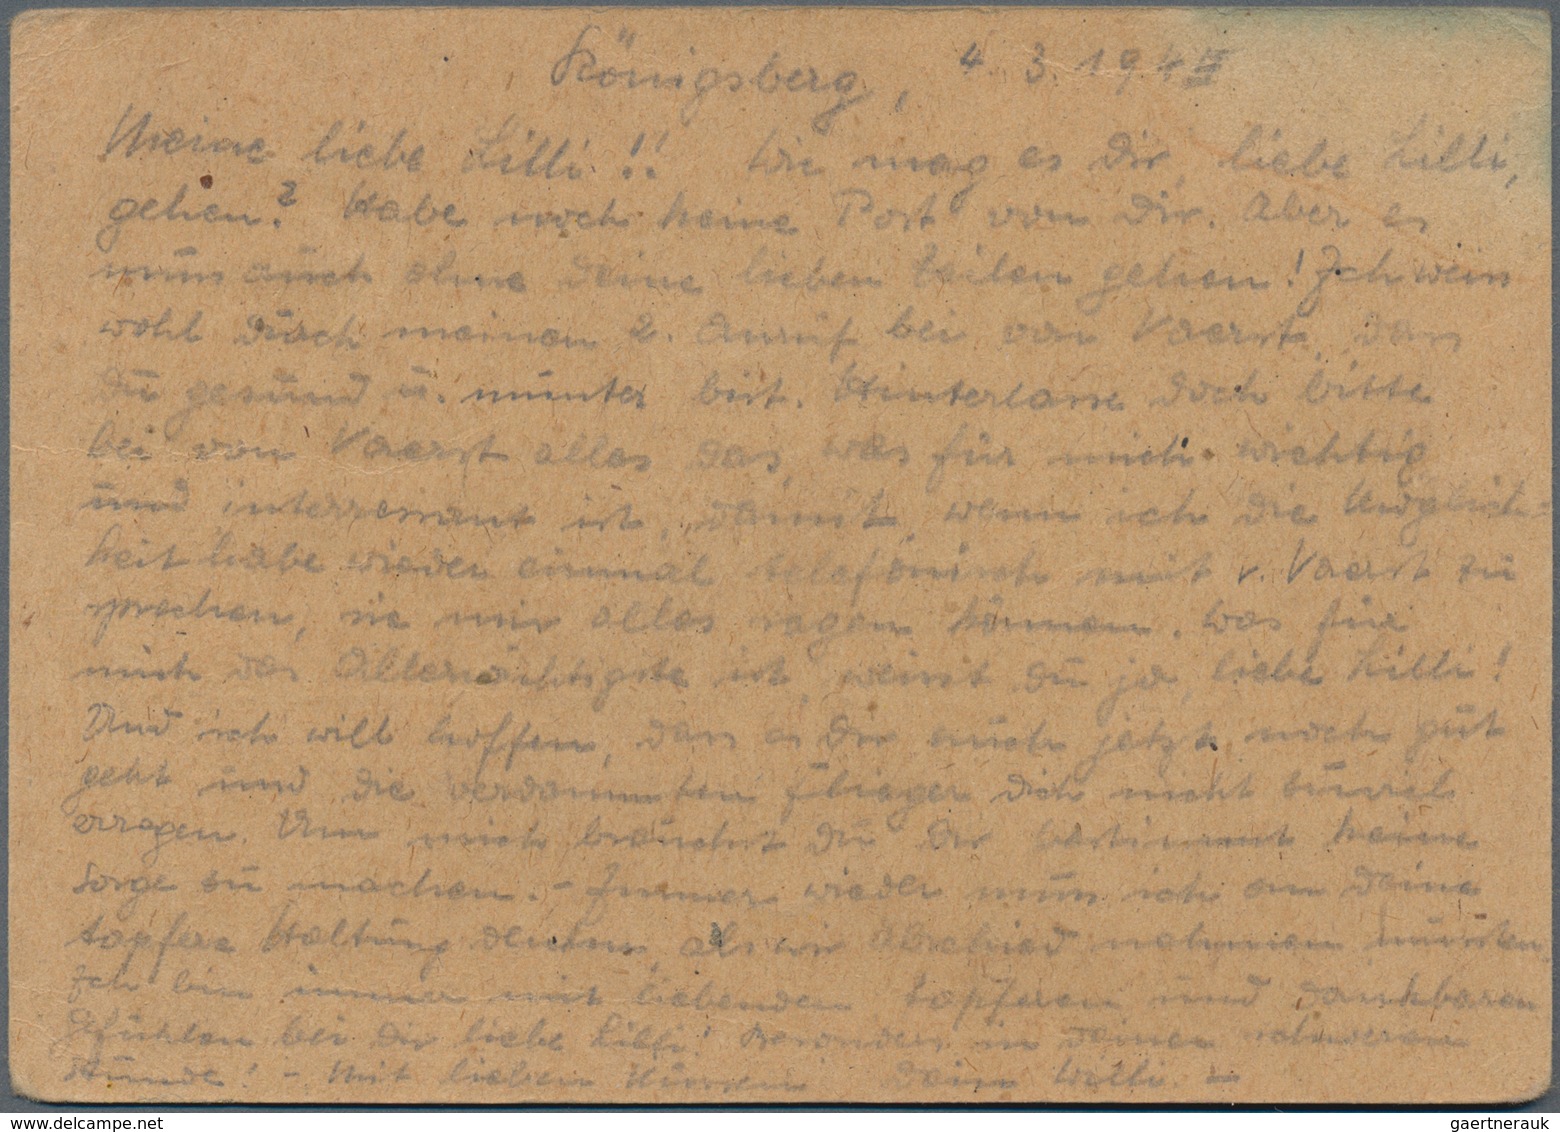 Königsberg, 4. 3. 194
Meine liebe Lilli!! Wie mag es Dir, liebe Lilli,
gehen? Habe noch keine Post von Dir. Aber es
muss auch ohne Deine lieben Zeilen gehen! Ich weiss
wohl durch meinen 2. Anruf bei von Vaerst, dass
Du gesund u. munter bist. Hinterlasse doch bitte
bei von Vaerst alles das, was für mich wichtig
und interressant ist, damit, wenn ich die Möglich-
keit habe wieder einmal telefonisch mit v. Vaerst zu
sprechen, sie mir alles sagen können. Was für
mich das Allerwichtigste ist, weisst Du ja, liebe Lilli!
Und ich will hoffen, dass es Dir auch jetzt noch gut
geht und die verdammten Flieger Dich nicht zuviel
erregen. Um mich brauchst Du Dir bestimmt keine
Sorge zu machen. - Immer wieder muss ich an Deine
tapfere Haltung denken, als wir Abschied nehmen mussten.
Ich bin immer mit liebenden tapferen und dankbaren
Gefühlen bei Dir liebe Lilli! Besonders in Deinen schweren
Stunde! - Mit lieben Küssen Dein Willi. -
gaertnerauk